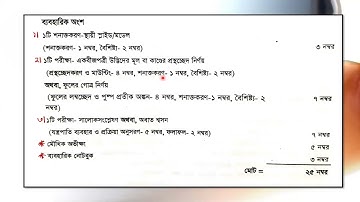 ব্যবহারিক অংশ
১। ১টি শনাক্তকরণ-স্থায়ী স্লাইড/মডেল
(শনাক্তকরণ- ১ নম্বর, বৈশিষ্ট্য- ২ নম্বর) ৩ নম্বর
২। ১টি পরীক্ষা- একবীজপত্রী উদ্ভিদের মূল বা কাণ্ডের প্রস্থচ্ছেদ নির্ণয়
(প্রস্থচ্ছেদকরণ ও মাউন্টিং- ৪ নম্বর, শনাক্তকরণ- ১ নম্বর, বৈশিষ্ট্য- ২ নম্বর)
অথবা, ফুলের গোত্র নির্ণয়
(ফুলের লম্বচ্ছেদ ও পুষ্প প্রতীক অঙ্কন- ৪ নম্বর, শনাক্তকরণ-১ নম্বর, বৈশিষ্ট্য- ২ নম্বর) ৭ নম্বর
৩। ১টি পরীক্ষা- সালোকসংশ্লেষণ অথবা, অবাত শ্বসন
(যন্ত্রপাতি ব্যবহার ও প্রক্রিয়া অনুসরণ- ৫ নম্বর, ফলাফল- ২ নম্বর) ৭ নম্বর
* মৌখিক অভীক্ষা ৫ নম্বর
* ব্যবহারিক নোটবুক ৩ নম্বর
মোট = ২৫ নম্বর